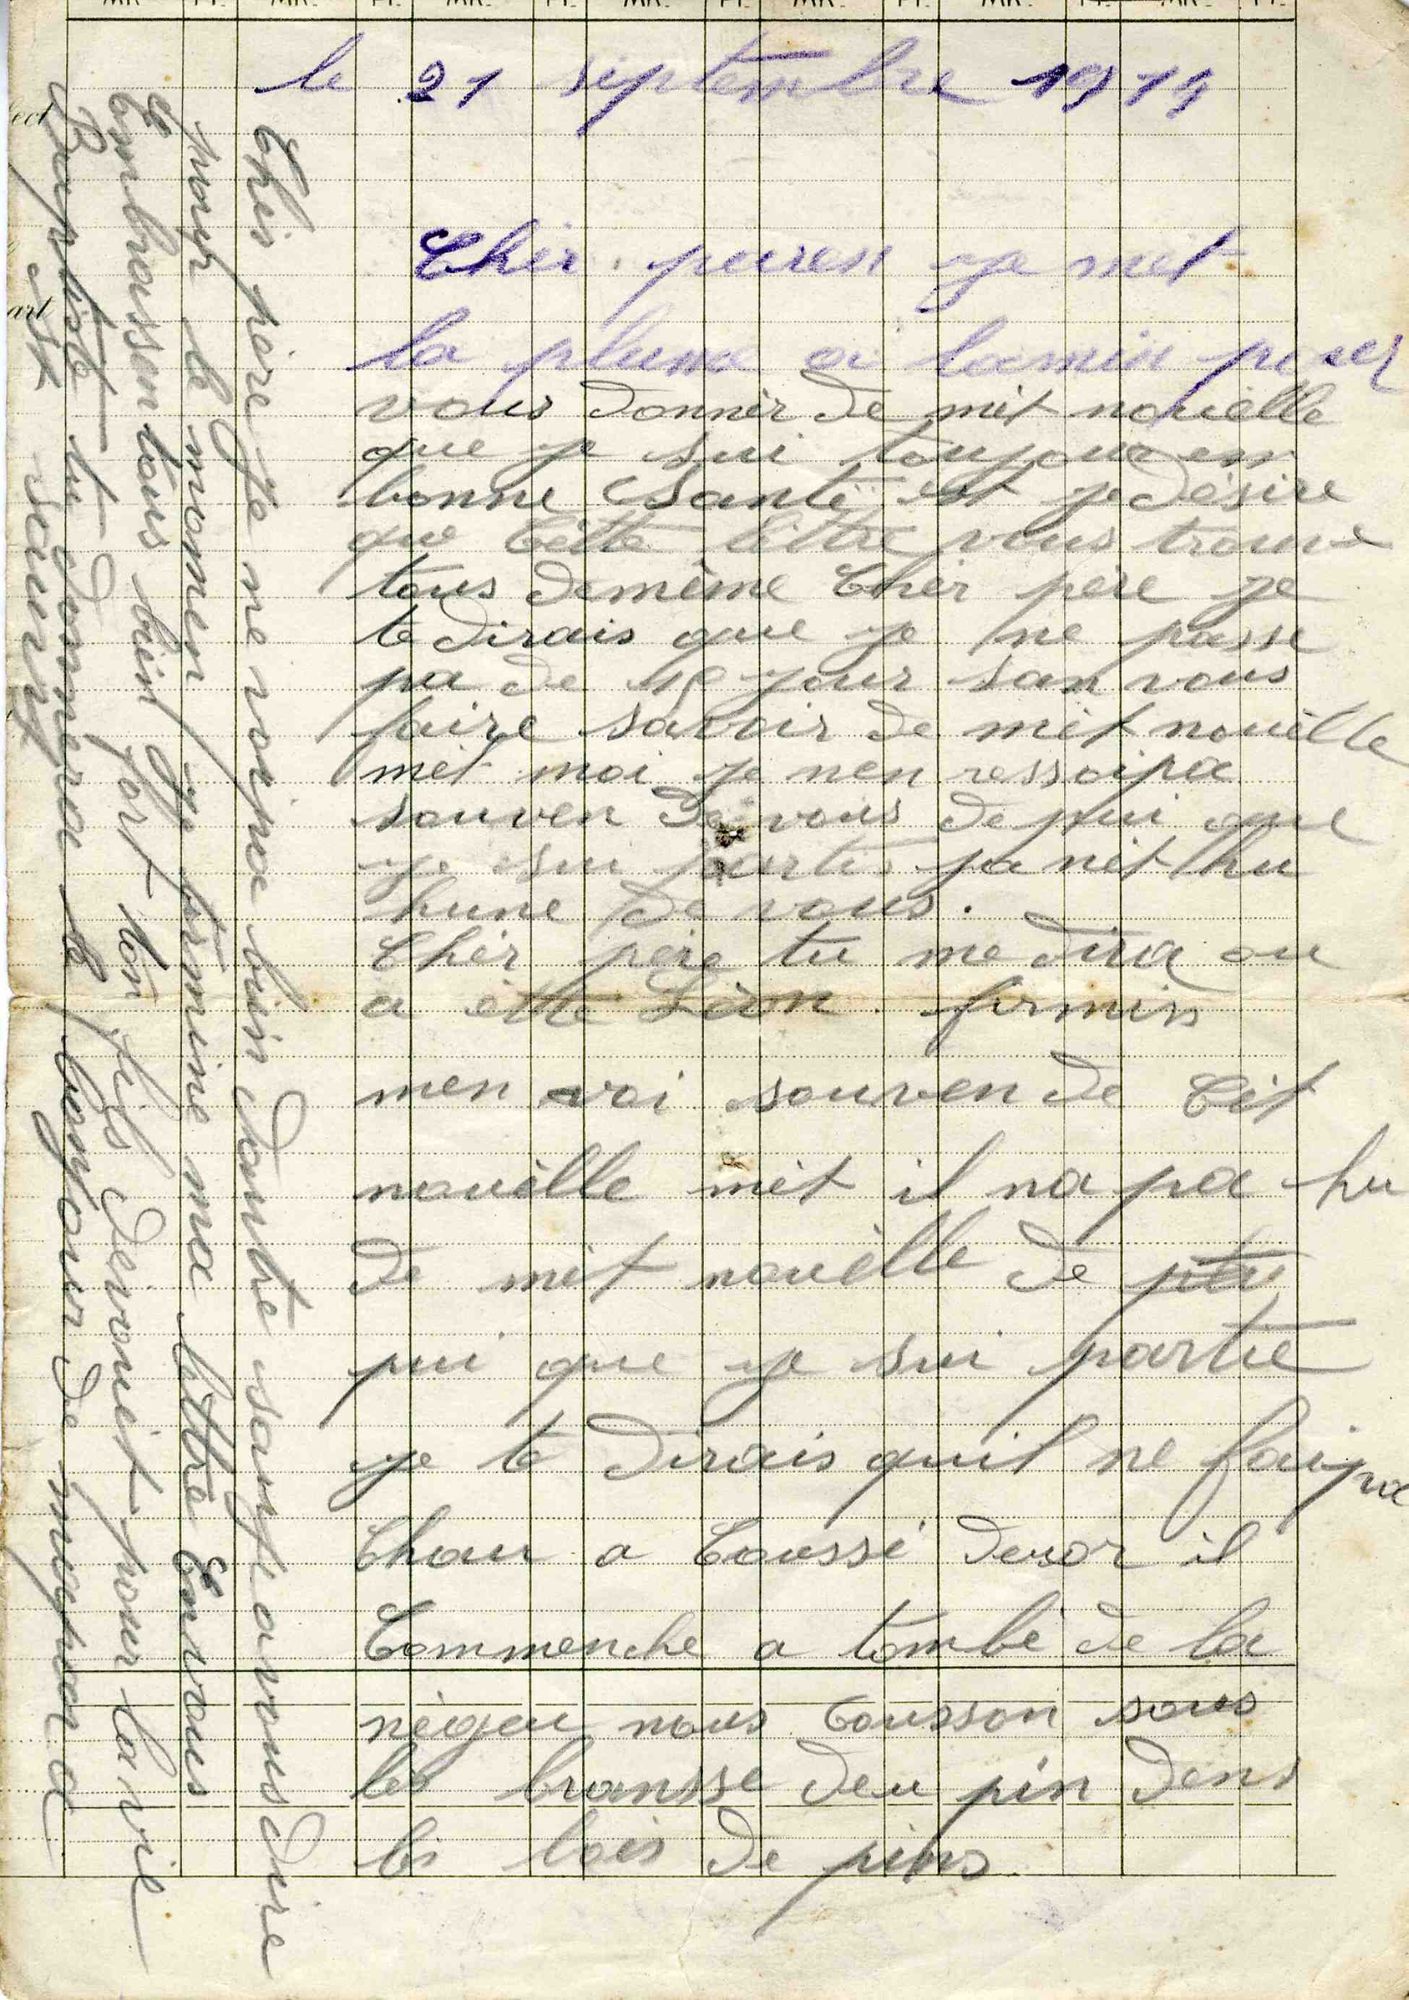 MK. Pf. MK. Pf. MK. Pf. MK. Pf. MK. Pf. MK. Pf.
le 21 septembre 1914
Cher paren je met
la plume a lamin pour
vous donner de mèt nouèlle
que je sui toujour en
bonne santé et je désire
que cètte lèttre vous trouve
tous demème Cher père je
te dirais que je ne passe
pa de 15 jour san vous
faire savoir de mèt nouèlle
mèt moi je nen ressoipa
souven de vous depui que
je sui partis ja nèt hu
hune de vous.
Chèr père tu me dira ou
a ètte Lèon. firmin
men voi souven de cèt
nouèlle mèt il na pa hu
de mèt nouèlle de
pui que je sui partie
je te dirais quil ne fai pa
chau a coussé deor il
commenche a tombé de la
nègeu nous cousson sous
les bransse deu pin dens
les bois de pins
Chèr père je ne voi pa bien dautre sauf a vous dire
pour le momen je tèrmine ma lèttre En vous
Embrassen tous bien fort ton fils dévouèt pour la vie
Baptiste tu donnera le bonjour de ma par a